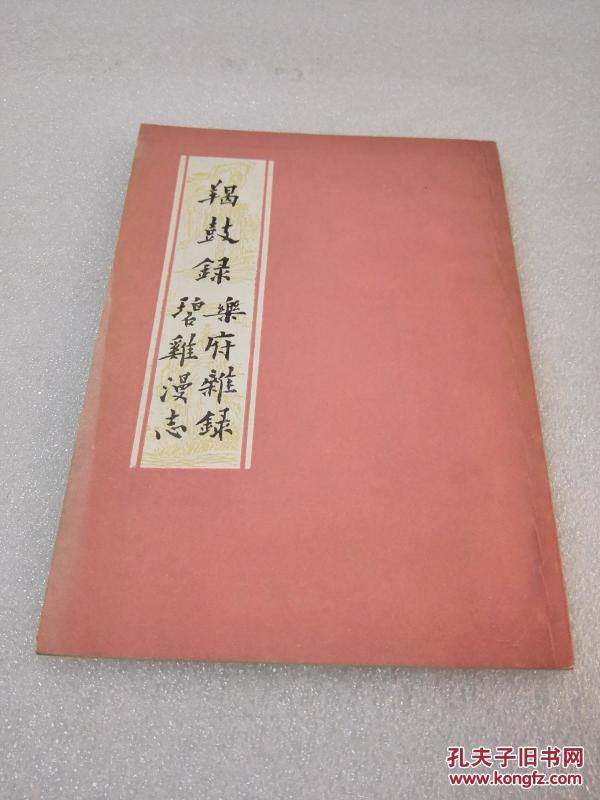 羯鼓録
樂府雜録
碧雞漫志
孔夫子旧书网
www.kongfz.com